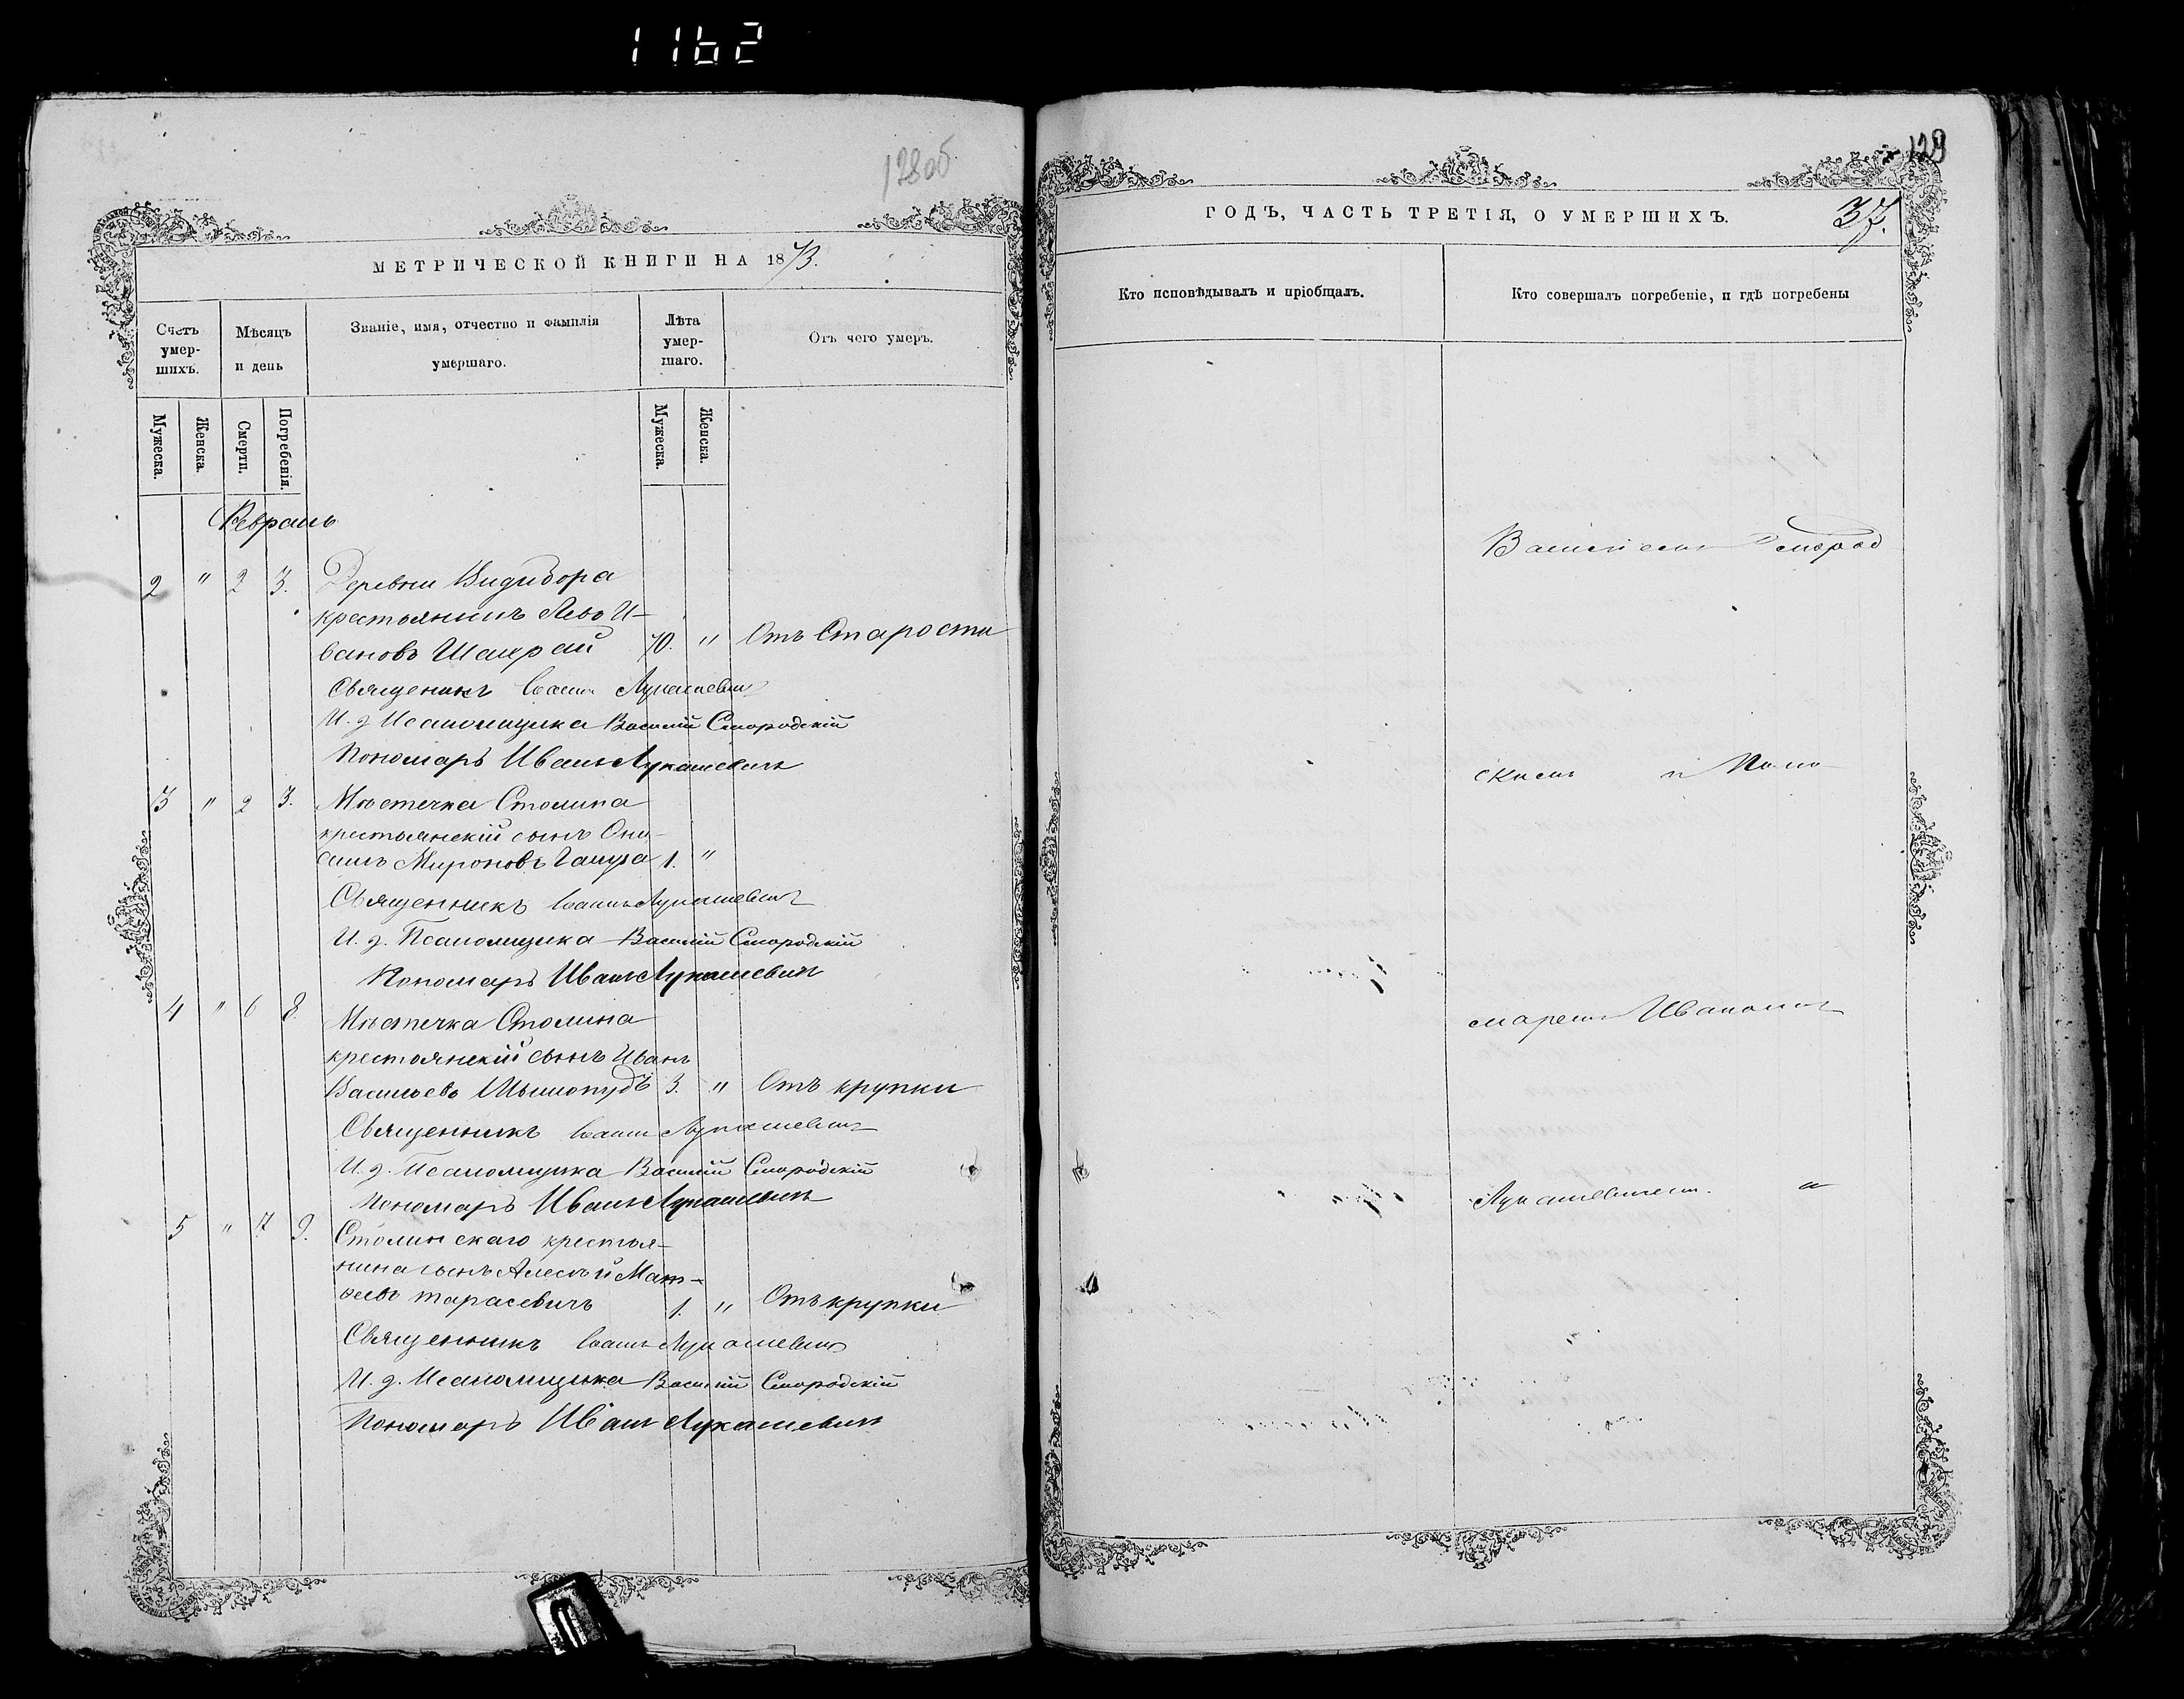 1162
128об
МЕТРИЧЕСКОЙ КНИГИ НА 1873.
Счетъ умер-
шихъ.
Мѣсяцъ
и день
Званіе, имя, отчество и фамилія
умершаго.
Лѣта
умер-
шаго.
Отъ чего умеръ.
Мужеска.
Женска.
Смерти.
Погребенія.
Мужеска.
Женска.
Февраль
2 " 2 3. Деревни Видибора
крестьянинъ Левъ И-
вановъ 70. " Отъ Старости
Священикъ Іоаннъ Лукашевичъ
И. д. Псаломщика Василій Смородскій
Пономарь Иванъ Лукашевичъ
3 " 2 3. Мѣстечка Столина
крестьянскій сынъ Они-
симъ Мироновъ 1. "
Священникъ Іоаннъ Лукашевичъ
И. д. Псаломщика Василій Смородскій
Пономарь Иванъ Лукашевичъ
4 " 6 8. Мѣстечка Столина
крестьянскій сынъ Иванъ
Васильевъ 3. " Отъ крупки
Священникъ Іоаннъ Лукашевичъ
И. д. Псаломщика Василій Смородскій
Пономарь Иванъ Лукашевичъ
5 " 7 9. Столинскаго крестья-
нина сынъ Алексѣй Мат-
ѳеевъ Тарасевичъ 1. " Отъ крупки
Священникъ Іоаннъ Лукашевичъ
И. д. Псаломщика Василій Смородскій
Пономарь Иванъ Лукашевичъ
129
ГОДЪ, ЧАСТЬ ТРЕТІЯ, О УМЕРШИХЪ.
37.
Кто исповѣдывалъ и пріобщалъ.
Кто совершалъ погребеніе, и гдѣ погребены
Василіемъ Смород
скимъ и Поно
маремъ Иваномъ
Лукашевичемъ.